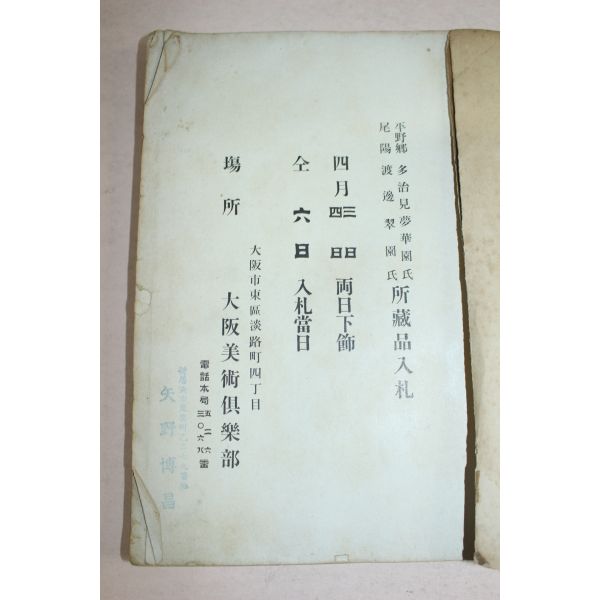 平野郷 多治見夢華園氏
尾陽 渡邊翠園氏
所藏品入札
四月 三日 四日 両日下飾
仝 六日 入札當日
場所
大阪市東區淡路町四丁目
大阪美術倶樂部
電話本局 五二六 三〇六八 番
矢野博昌